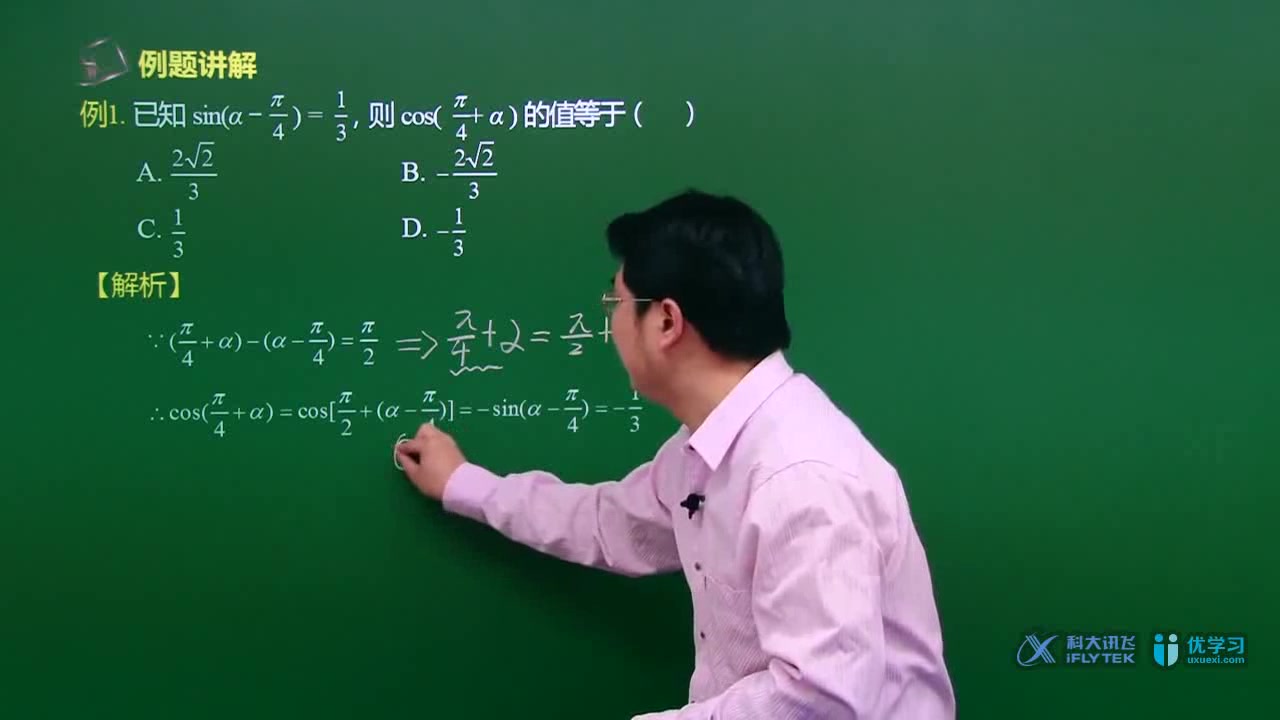 例题讲解
例1. 已知 sin(α − π/4) = 1/3, 则 cos( π/4 + α ) 的值等于 (    )
A. 2√2/3    B. −2√2/3
C. 1/3    D. −1/3
【解析】
∵ (π/4 + α) − (α − π/4) = π/2 ⇒ π/4 + 2 = π/2 +
∴ cos(π/4 + α) = cos[π/2 + (α − π/4)] = −sin(α − π/4) = −1/3
科大讯飞 优学习
iFLYTEK uxuexi.com